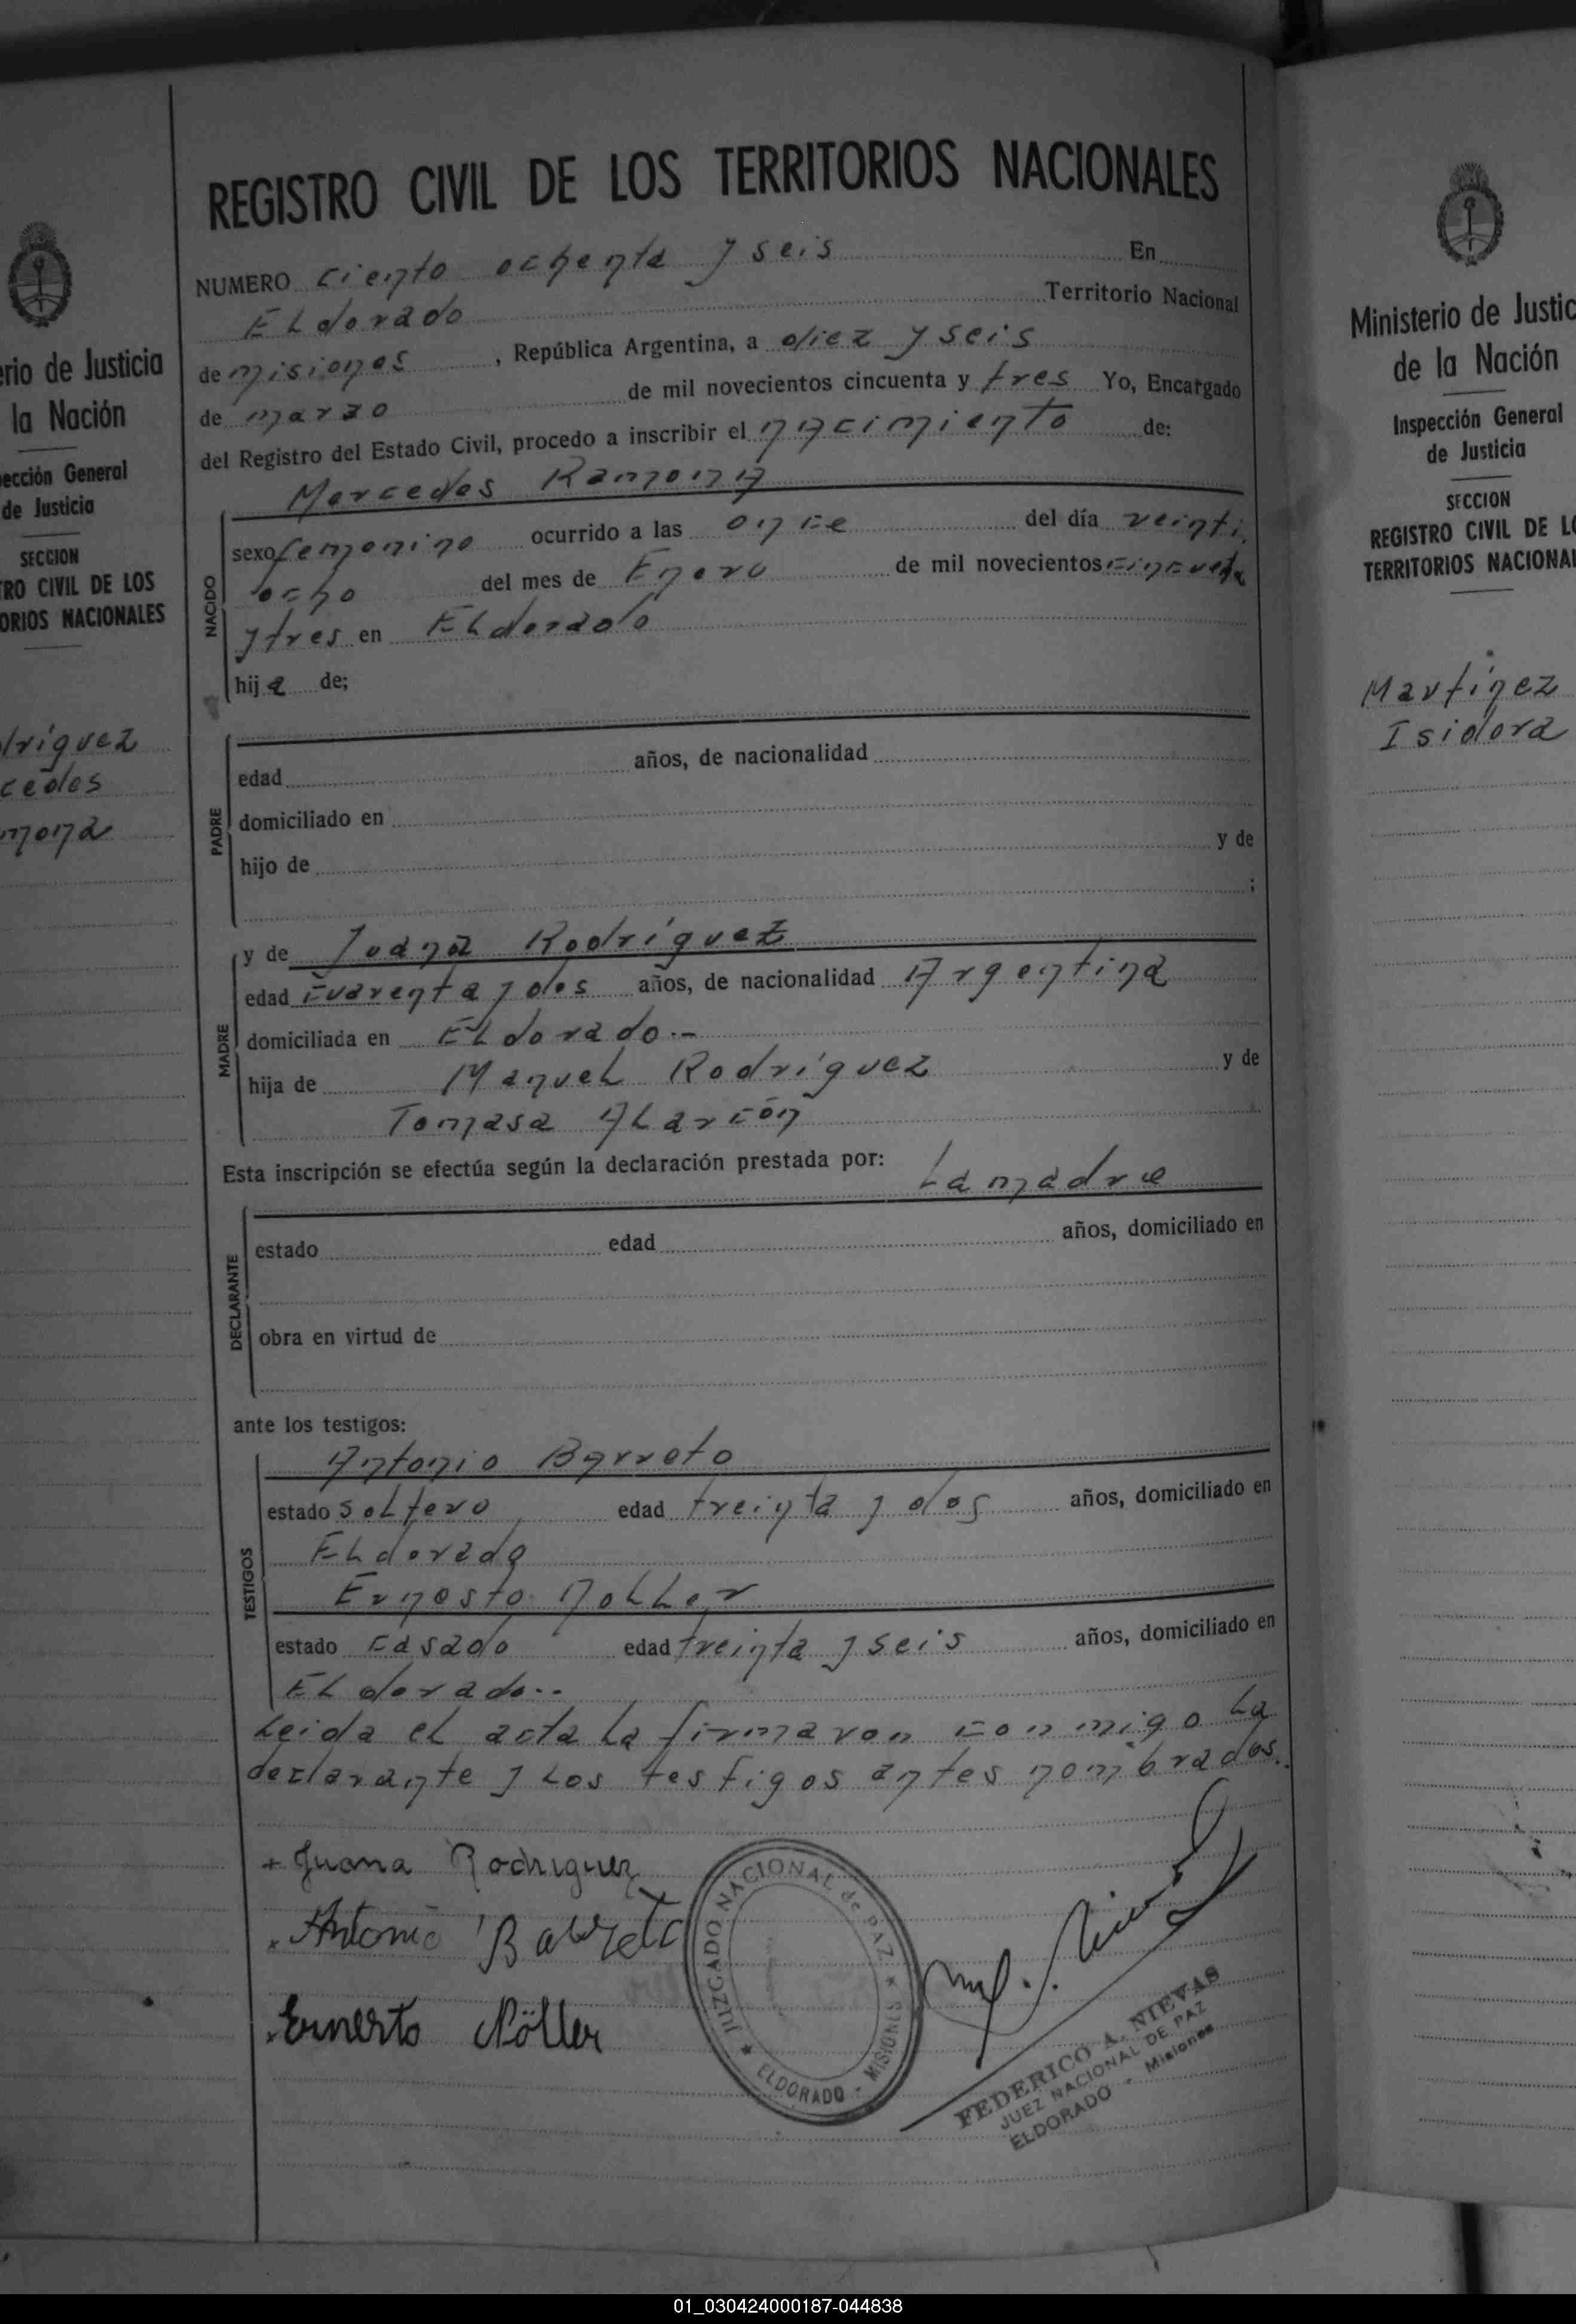 rio de Justicia
la Nación
ección General
de Justicia
SECCION
RO CIVIL DE LOS
ORIOS NACIONALES
dríguez
cedes
mona
REGISTRO CIVIL DE LOS TERRITORIOS NACIONALES
NUMERO ciento ochenta y seis En
ELdorado Territorio Nacional
de misiones, República Argentina, a diez y seis
de marzo de mil novecientos cincuenta y tres Yo, Encargado
del Registro del Estado Civil, procedo a inscribir el nacimiento de:
Mercedes Ramona
NACIDO
sexo femenino ocurrido a las once del día veinti
ocho del mes de Enero de mil novecientos cincuenta
y tres en ELdorado
hija de;
PADRE
edad años, de nacionalidad
domiciliado en
hijo de y de
;
MADRE
y de Juana Rodríguez
edad cuarenta y dos años, de nacionalidad Argentina
domiciliada en ELdorado.-
hija de ManueL Rodríguez y de
Tomasa ALarcón
Esta inscripción se efectúa según la declaración prestada por: La madre
DECLARANTE
estado edad años, domiciliado en
obra en virtud de
ante los testigos:
TESTIGOS
Antonio Barreto
estado soLtero edad treinta y dos años, domiciliado en
ELdorado
Ernesto NoLLer
estado casado edad treinta y seis años, domiciliado en
ELdorado..
Leida eL acta La firmaron conmigo La
declarante y Los testigos antes nombrados.
+ Juana Rodriguez
x Antonio Barreto
x Ernesto Nöller
JUZGADO NACIONAL de PAZ
ELDORADO - MISIONES
FEDERICO A. NIEVAS
JUEZ NACIONAL DE PAZ
ELDORADO - Misiones
Ministerio de Justic
de la Nación
Inspección General
de Justicia
SECCION
REGISTRO CIVIL DE LO
TERRITORIOS NACIONAL
Martínez
Isidora
01_030424000187-044838